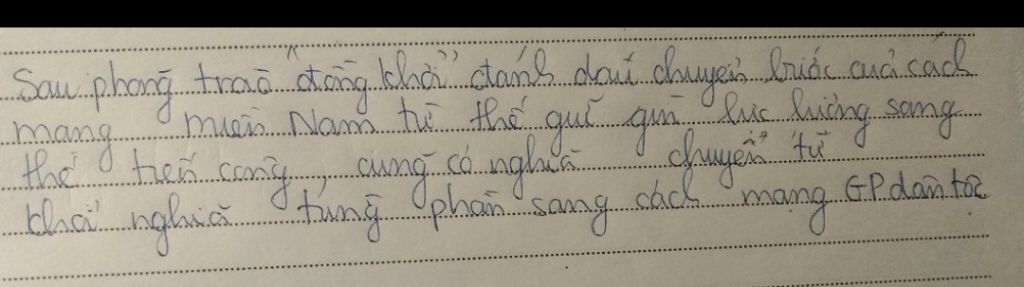 Sau phong trào "đồng khởi" đánh dấu chuyển bước của cách
mạng miền Nam từ thế giữ gìn lực lượng sang
thế tiến công, cũng có nghĩa chuyển từ
khởi nghĩa từng phần sang cách mạng GP dân tộc